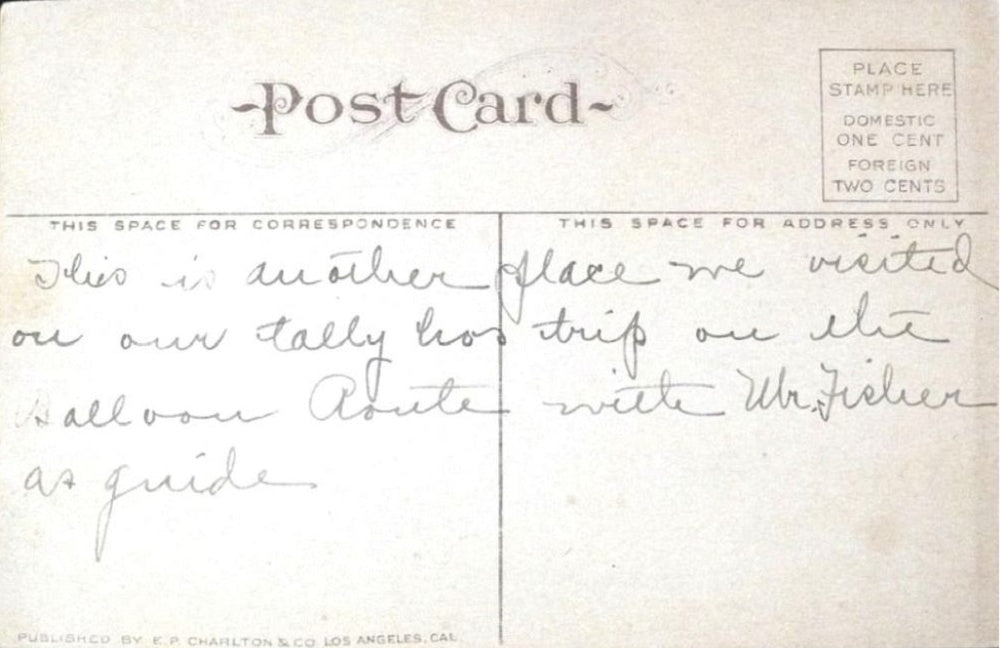 Post Card
PLACE
STAMP HERE
DOMESTIC
ONE CENT
FOREIGN
TWO CENTS
THIS SPACE FOR CORRESPONDENCE
THIS SPACE FOR ADDRESS ONLY
This is another place we visited
on our tally hoo trip on the
Balloon Route with Mr. Fisher
as guide
PUBLISHED BY E. P. CHARLTON & CO LOS ANGELES, CAL